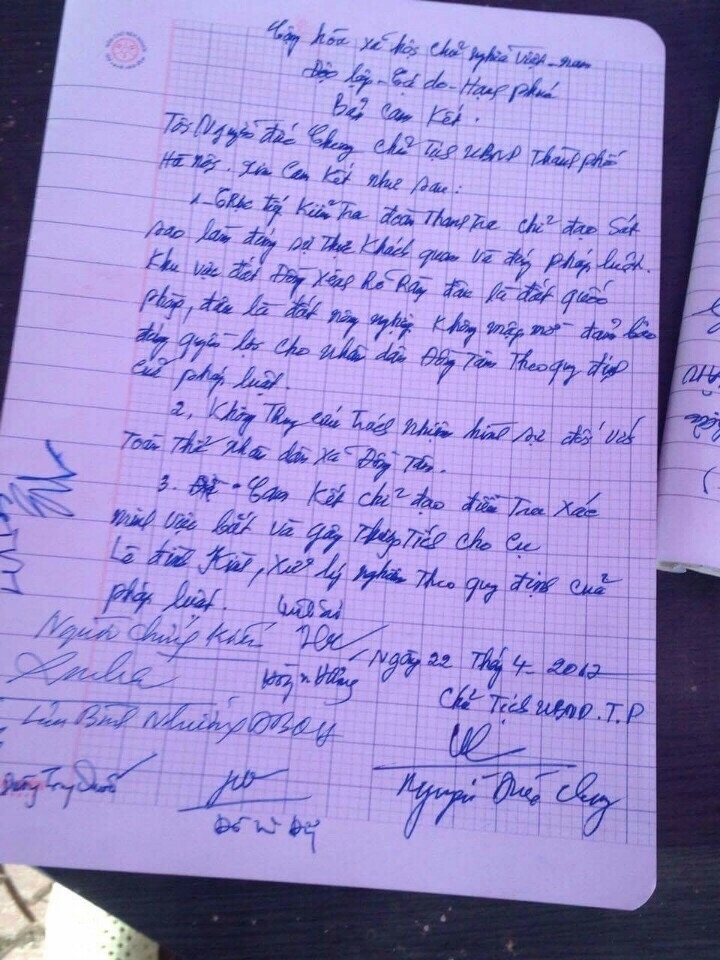 Cộng hòa xã hội chủ nghĩa Việt-nam
Độc lập - Tự do - Hạnh phúc
Bản Cam Kết.
Tôi Nguyễn Đức Chung Chủ Tịch UBND Thành phố
Hà Nội. Xin Cam Kết như sau:
1- Trực tiếp Kiểm Tra đoàn Thanh Tra chỉ đạo Sát
sao làm đúng sự Thực Khách quan và đúng pháp luật.
Khu vực đất Đồng Xênh Rõ Ràng đâu là đất quốc
phòng, đâu là đất nông nghiệp. Không mập mờ đảm bảo
đúng quyền lợi cho nhân dân Đồng Tâm Theo quy định
của pháp luật.
2, Không Truy cứu Trách nhiệm hình sự đối với
Toàn Thể Nhân dân Xã Đồng Tâm.
3. Cam Kết chỉ đạo điều Tra Xác
minh việc bắt và gây Thương Tích cho Cụ
Lê Đình Kình, Xử lý nghiêm Theo quy định của
pháp luật.
Người Chứng Kiến
Ngày 22 Tháng 4- 2017
Chủ Tịch UBND.T.P
Lưu Bình Nhưỡng ĐBQH
Dương Trung Quốc
Nguyễn Đức Chung